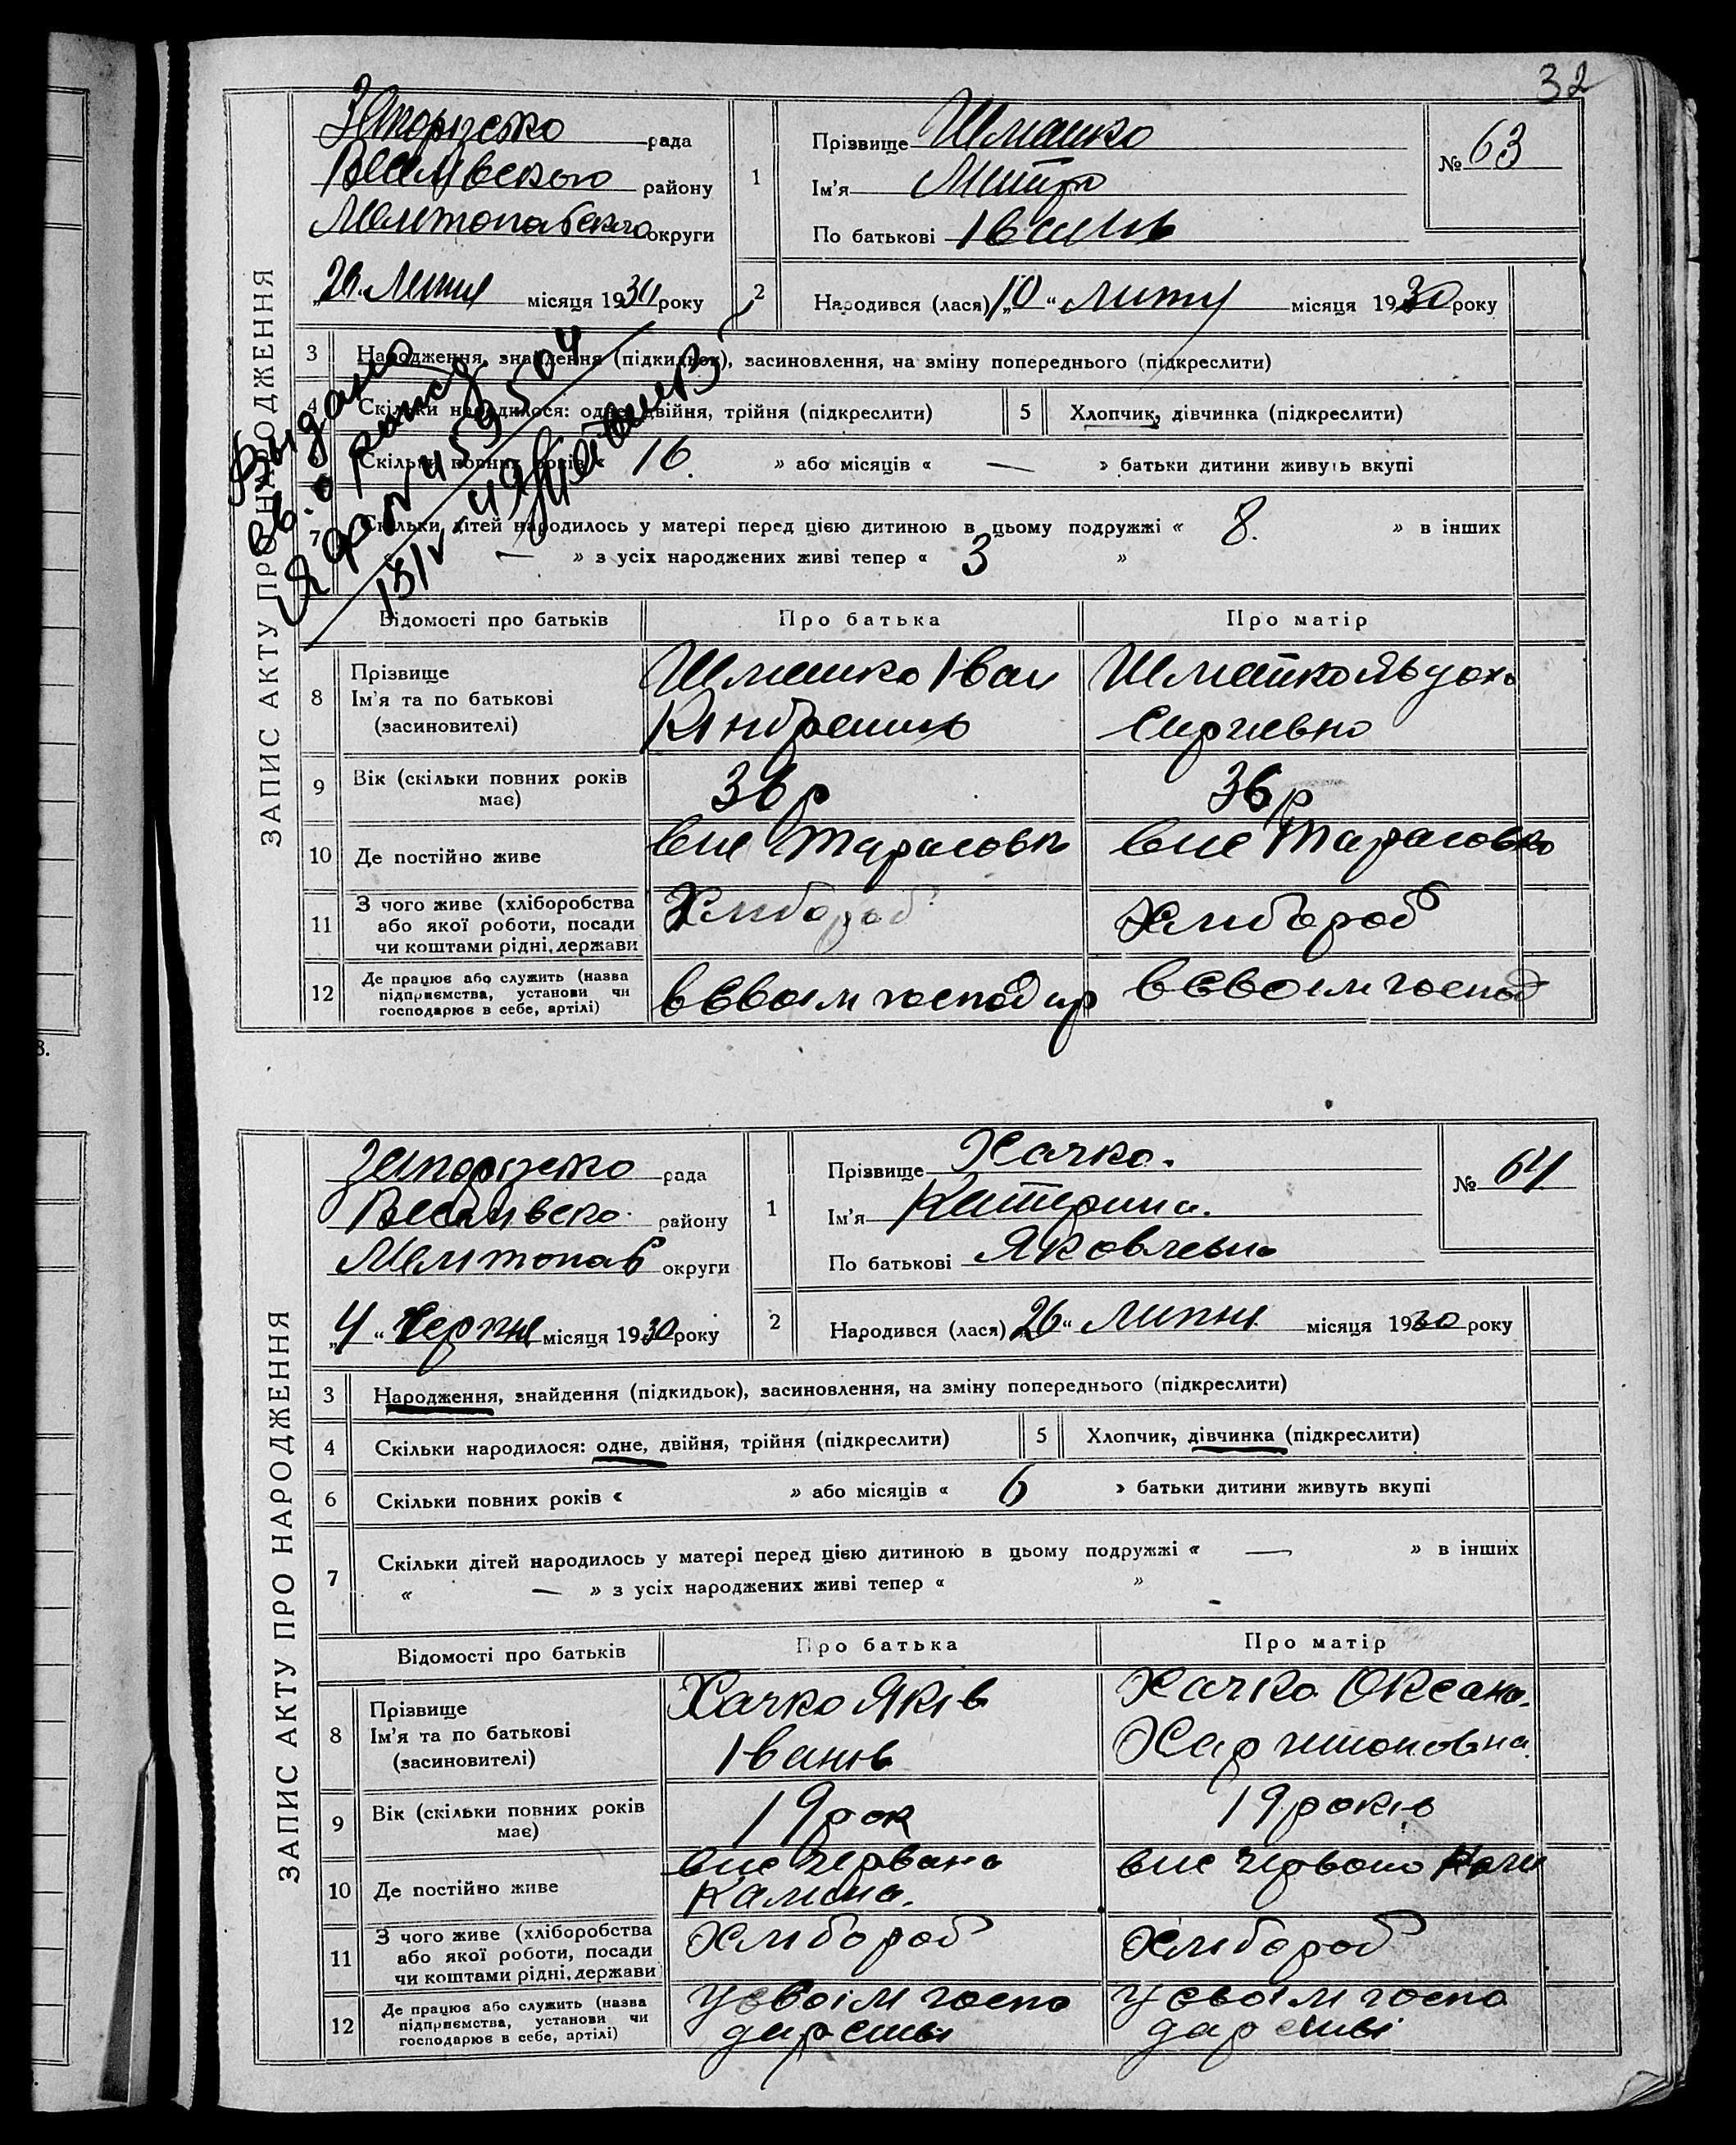 32
ЗАПИС АКТУ ПРО НАРОДЖЕННЯ
Запорізько рада
Веселівського району
Мелитопольського округи
місяця 1930 року
1
Прізвище Шмашко
Ім'я Митро
По батькові Іванів
№ 63
2
Народився (лася) „10“ місяця 1930 року
3 Народження, знайдення (підкидьок), засиновлення, на зміну попереднього (підкреслити)
4 Скільки народилося: одне, двійня, трійня (підкреслити) 5 Хлопчик, дівчинка (підкреслити)
Скільки повних років « 16 » або місяців « — » батьки дитини живуть вкупі
7 Скільки дітей народилось у матері перед цією дитиною в цьому подружжі « 8. » в інших
« — » з усіх народжених живі тепер « 3 »
Выдано
св. о
Відомості про батьків Про батька Про матір
8 Прізвище
Ім'я та по батькові
(засновителі)
Шмашко Іван
Шмашко
Сергиевно
9 Вік (скільки повних років має) 36 р 36 р
10 Де постійно живе вис Тарасовко вис Тарасовко
11 З чого живе (хліборобства
або якої роботи, посади
чи коштами рідні, держави
Хлибороб Хлибороб
12 Де працює або служить (назва
підприємства, установи чи
господарює в себе, артілі)
в своім господар в своім господ
ЗАПИС АКТУ ПРО НАРОДЖЕННЯ
Запорізько рада
Веселівско району
Мелитопав округи
„4“ Червня місяця 1930 року
1
Прізвище Хачко.
Ім'я Катерина.
По батькові Яковлевна
№ 64
2
Народився (лася) „26“ Липня місяця 1930 року
3 Народження, знайдення (підкидьок), засиновлення, на зміну попереднього (підкреслити)
4 Скільки народилося: одне, двійня, трійня (підкреслити) 5 Хлопчик, дівчинка (підкреслити)
6 Скільки повних років « » або місяців « 6 » батьки дитини живуть вкупі
7 Скільки дітей народилось у матері перед цією дитиною в цьому подружжі « — » в інших
« — » з усіх народжених живі тепер « »
Відомості про батьків Про батька Про матір
8 Прізвище
Ім'я та по батькові
(засиновителі)
Хачко Яків
Іванів
Хачко Оксана.
Харитоновна
9 Вік (скільки повних років має) 19 рок 19 років
10 Де постійно живе
вис Червана
Калина.
вис Червоно Кали
11 З чого живе (хліборобства
або якої роботи, посади
чи коштами рідні, держави
Хлибороб Хлибороб
12 Де працює або служить (назва
підприємства, установи чи
господарює в себе, артілі)
У своім госпо
дарстві
У своім госпо
дарстві